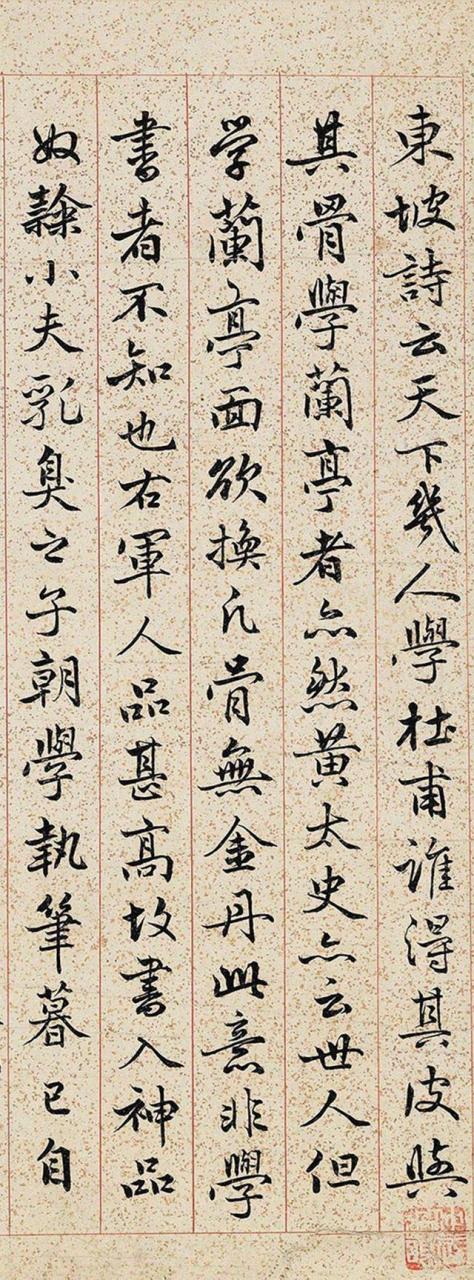 東坡詩云天下幾人學杜甫誰得其皮與
其骨學蘭亭者亦然黃太史亦云世人但
学蘭亭面欲換凡骨無金丹此意非學
書者不知也右軍人品甚高故書入神品
奴隸小夫乳臭之子朝學執筆暮已自